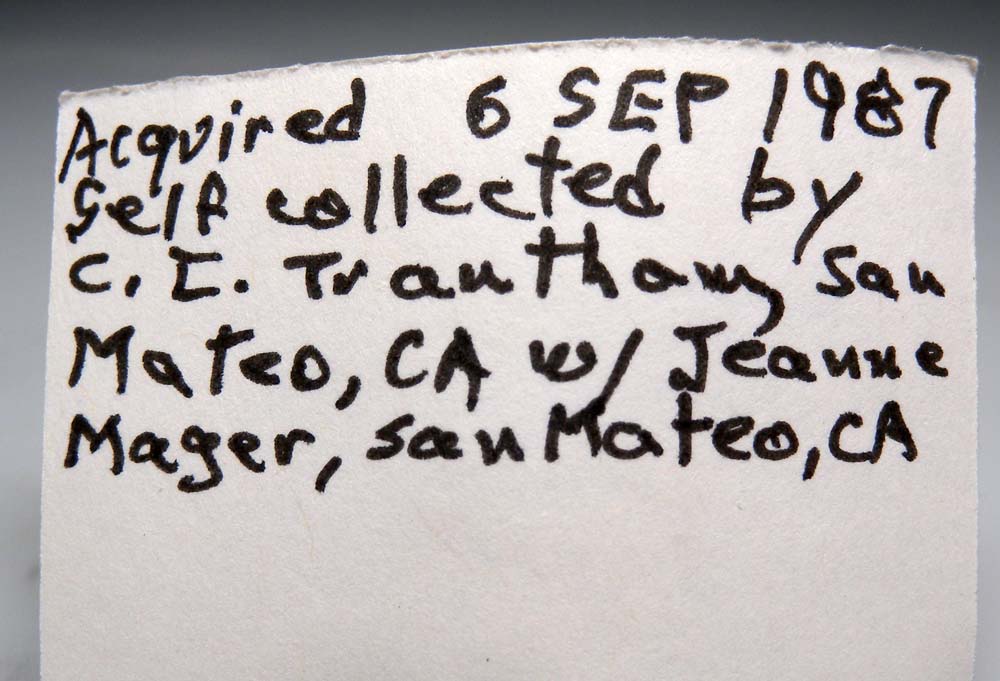 Acquired 6 SEP 1987
Self collected by
C. E. Trantham, San
Mateo, CA w/ Jeanne
Mager, San Mateo, CA